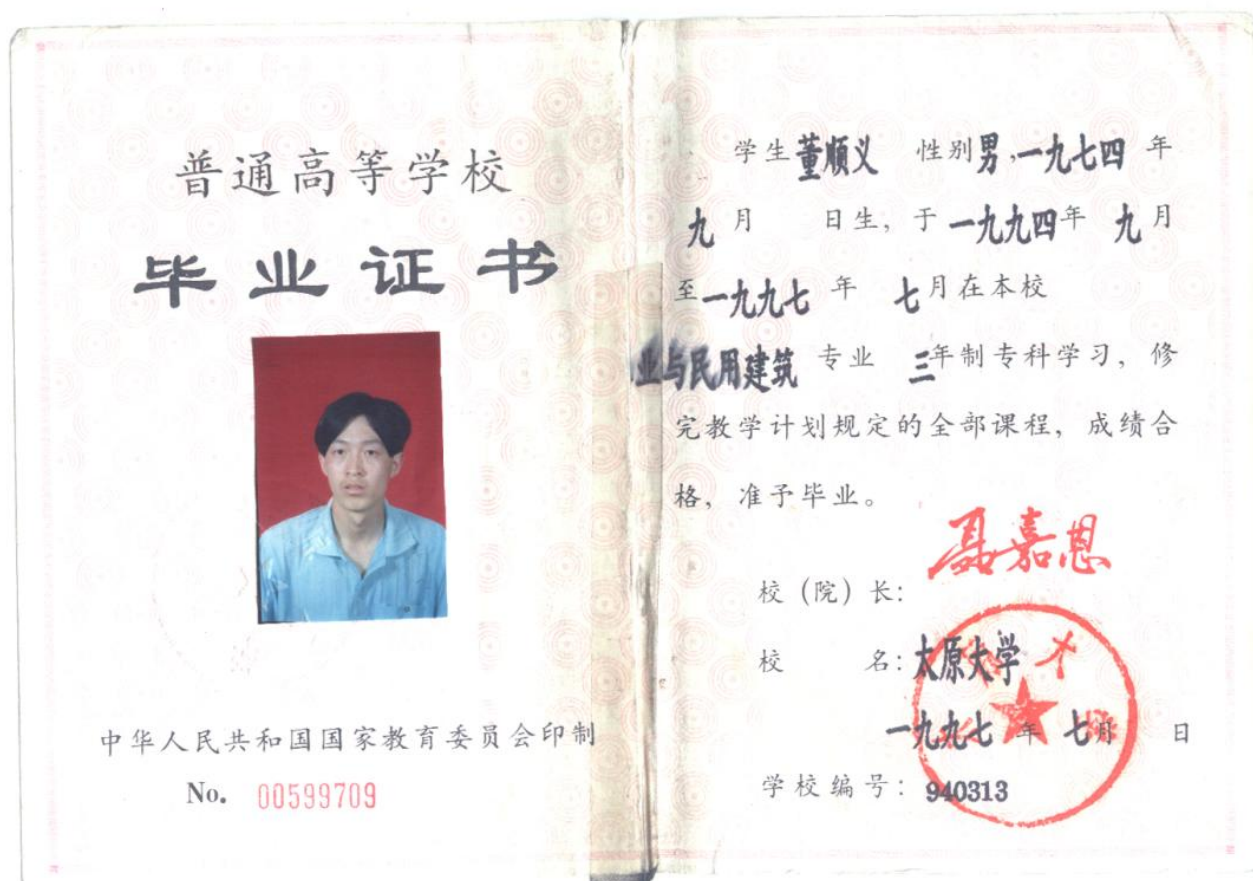 普通高等学校
毕业证书
中华人民共和国国家教育委员会印制
No. 00599709
学生董顺义 性别男,一九七四 年
九月 日生, 于一九九四年 九月
至一九九七 年 七月在本校
业与民用建筑 专业 三年制专科学习, 修
完教学计划规定的全部课程, 成绩合
格, 准予毕业。
校(院)长: 聂嘉恩
校 名: 太原大学
一九九七 年 七月 日
学校编号: 940313